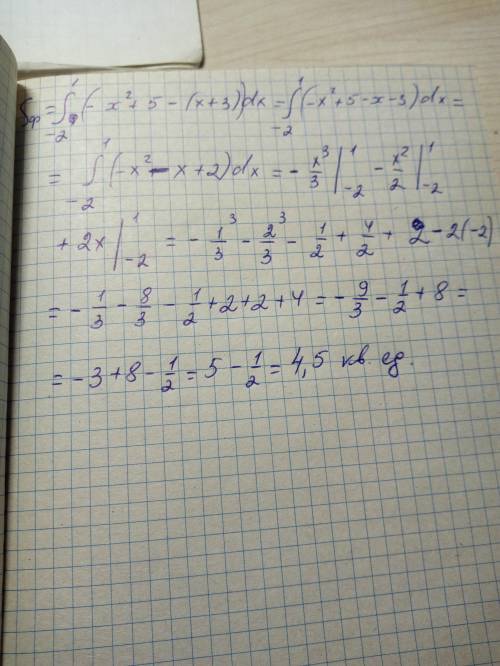 Sф = ∫₋₂¹ (- x² + 5 - (x+3))dx = ∫₋₂¹ (-x² + 5 - x - 3)dx =
= ∫₋₂¹ (-x² - x + 2)dx = - x³/3 |₋₂¹ - x²/2 |₋₂¹
+ 2x |₋₂¹ = - 1³/3 - 2³/3 - 1/2 + 4/2 + 2 - 2(-2)
= - 1/3 - 8/3 - 1/2 + 2 + 2 + 4 = - 9/3 - 1/2 + 8 =
= -3 + 8 - 1/2 = 5 - 1/2 = 4,5 кв. ед.